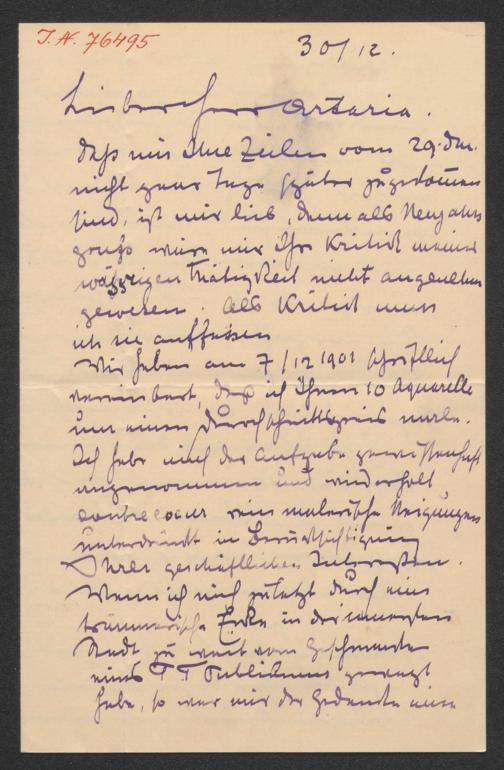 J. N. 76495
30/12.
Lieber Herr Artaria.
Daß mir Ihre Zeilen vom 29. Dez.
nicht zwei Tage später zugekommen
sind, ist mir lieb, denn als Neujahrs
gruß wäre mir Ihre Kritik meiner
Thätigkeit nicht angenehm
gewesen. Als Kritik muss
ich sie auffassen
Wir haben am 7/12 1901 schriftlich
vereinbart, daß ich Ihnen 10 Aquarelle
um einen Durchschnittspreis male.
Ich habe mich der Aufgabe gewissenhaft
angenommen und wiederholt
contre coeur rein malerische Neigungen
unterdrückt in Berücksichtigung
Ihrer geschäftlichen Interessen.
Wenn ich mich zuletzt durch eine
träumerische Ecke in der innersten
Stadt zu weit vom Geschmacke
eines Publikums gewagt
habe, so war mir der Gedanke eine